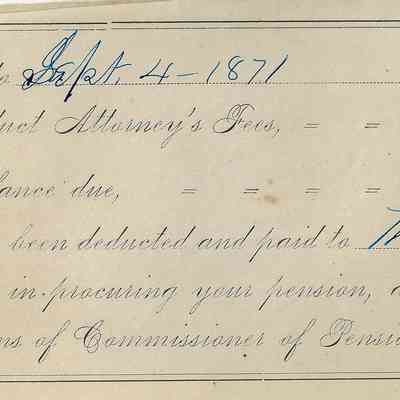 to Sept. 4-1871
uct Attorney's Fees, = =
lance due, = = = =
been deducted and paid to
in procuring your pension, a
ns of Commissioner of Pensio